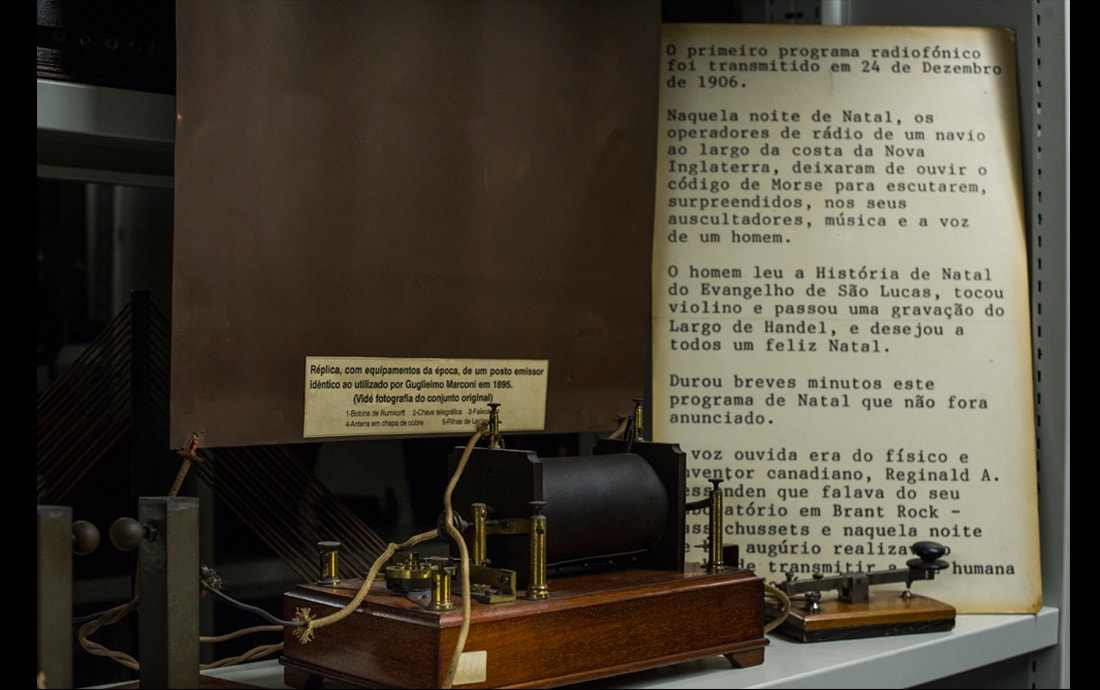 Réplica, com equipamentos da época, de um posto emissor
idêntico ao utilizado por Guglielmo Marconi em 1895.
(Vidé fotografia do conjunto original)
1-Bobina de Rumkorff 2-Chave telegráfica
4-Antena em chapa de cobre 5-Pilhas de
O primeiro programa radiofónico
foi transmitido em 24 de Dezembro
de 1906.
Naquela noite de Natal, os
operadores de rádio de um navio
ao largo da costa da Nova
Inglaterra, deixaram de ouvir o
código de Morse para escutarem,
surpreendidos, nos seus
auscultadores, música e a voz
de um homem.
O homem leu a História de Natal
do Evangelho de São Lucas, tocou
violino e passou uma gravação do
Largo de Handel, e desejou a
todos um feliz Natal.
Durou breves minutos este
programa de Natal que não fora
anunciado.
voz ouvida era do físico e
canadiano, Reginald A.
que falava do seu
em Brant Rock -
e naquela noite
augúrio
de transmitir a humana